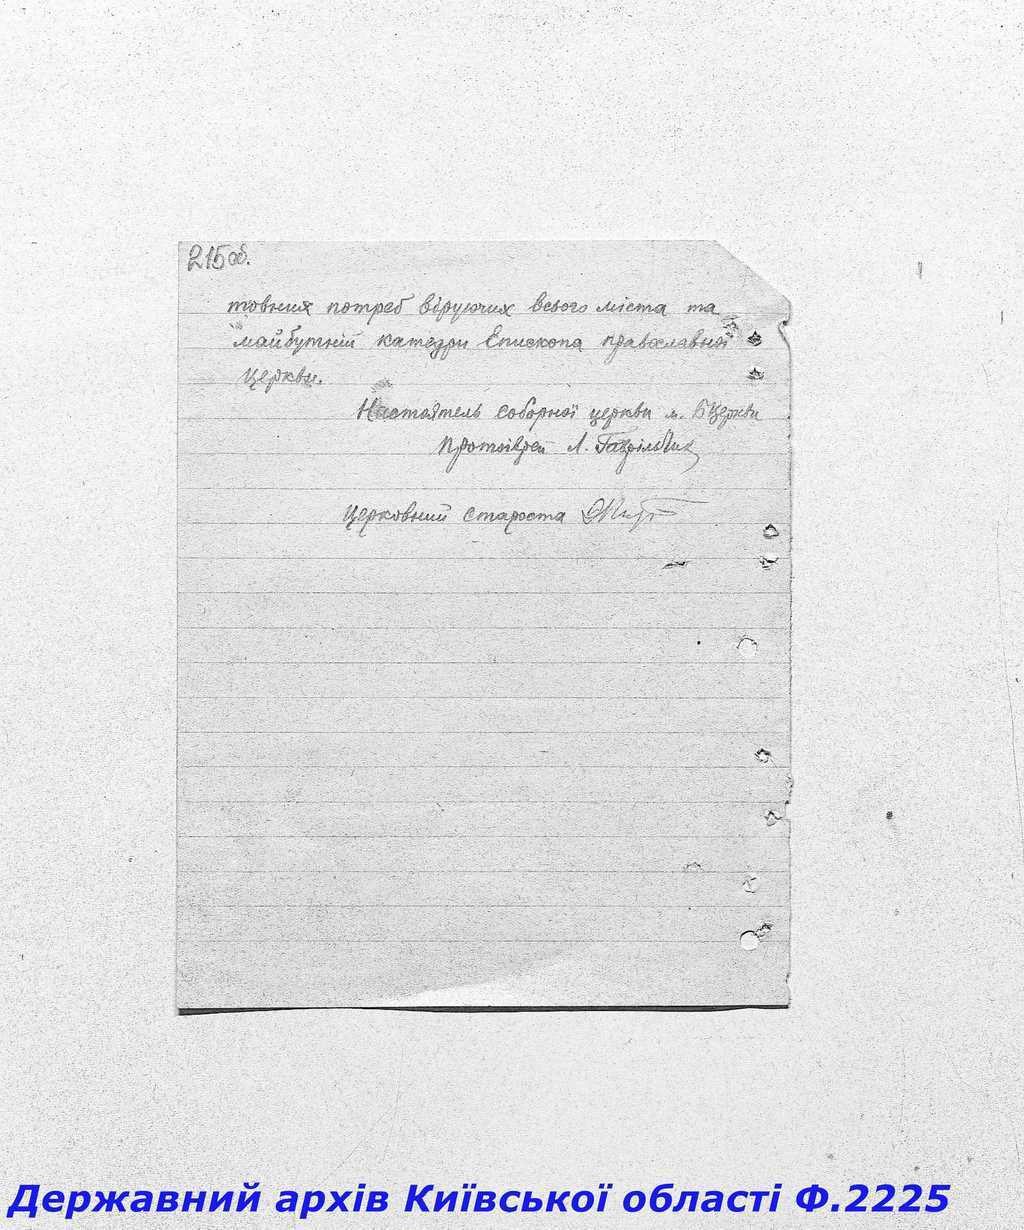 215об.
товних потреб віруючих всього міста та
майбутній катедри Епископа православної
церкви.
Настоятель соборної церкви м. БЦеркви
Протоієрей Л.
Церковний староста
Державний архів Київської області Ф.2225